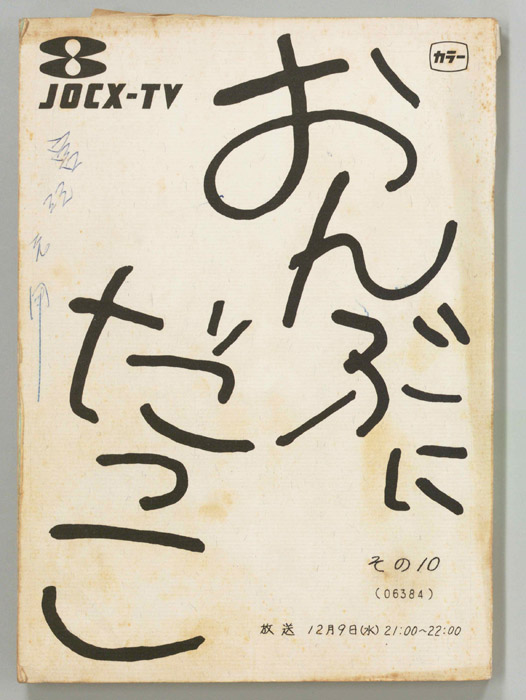 JOCX-TV
カラー
おんぶに
だっこ
その10
(06384)
放送 12月9日(水) 21:00~22:00